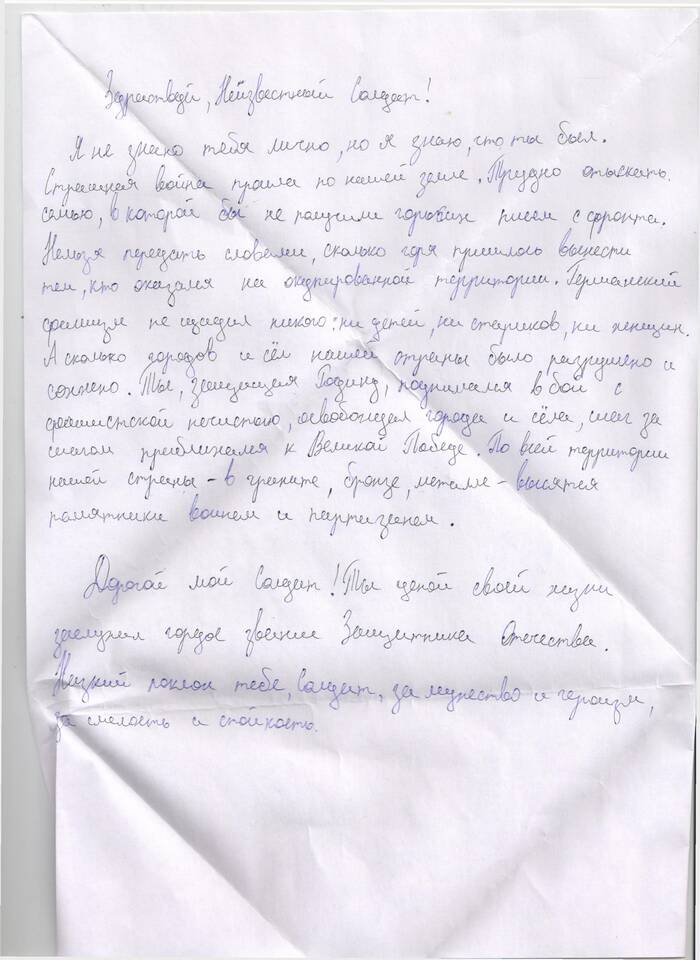 Здраствуй, Неизвестный Солдат!
Я не знаю тебя лично, но я знаю, что ты был.
Страшная война прошла по нашей земле. Трудно отыскать
семью, в которой бы не получили горьких писем с фронта.
Нельзя передать словами, сколько горя пришлось вынести
тем, кто оказался на окупированной территории. Германский
фашизм не щадил никого: ни детей, ни стариков, ни женщин.
А сколько городов и сёл нашей страны было разрушено и
сожжено. Ты, защищая Родину, поднимался в бой с
фашистской нечистью, освобождал города и сёла, шаг за
шагом приближался к Великой Победе. По всей территории
нашей страны - в граните, бронзе, металле - высятся
памятники воинам и партизанам.
Дорогой мой Солдат! Ты ценой своей жизни
заслужил гордое звание Защитника Отечества.
Низкий поклон тебе, Солдат, за мужество и героизм,
за смелость и стойкость.